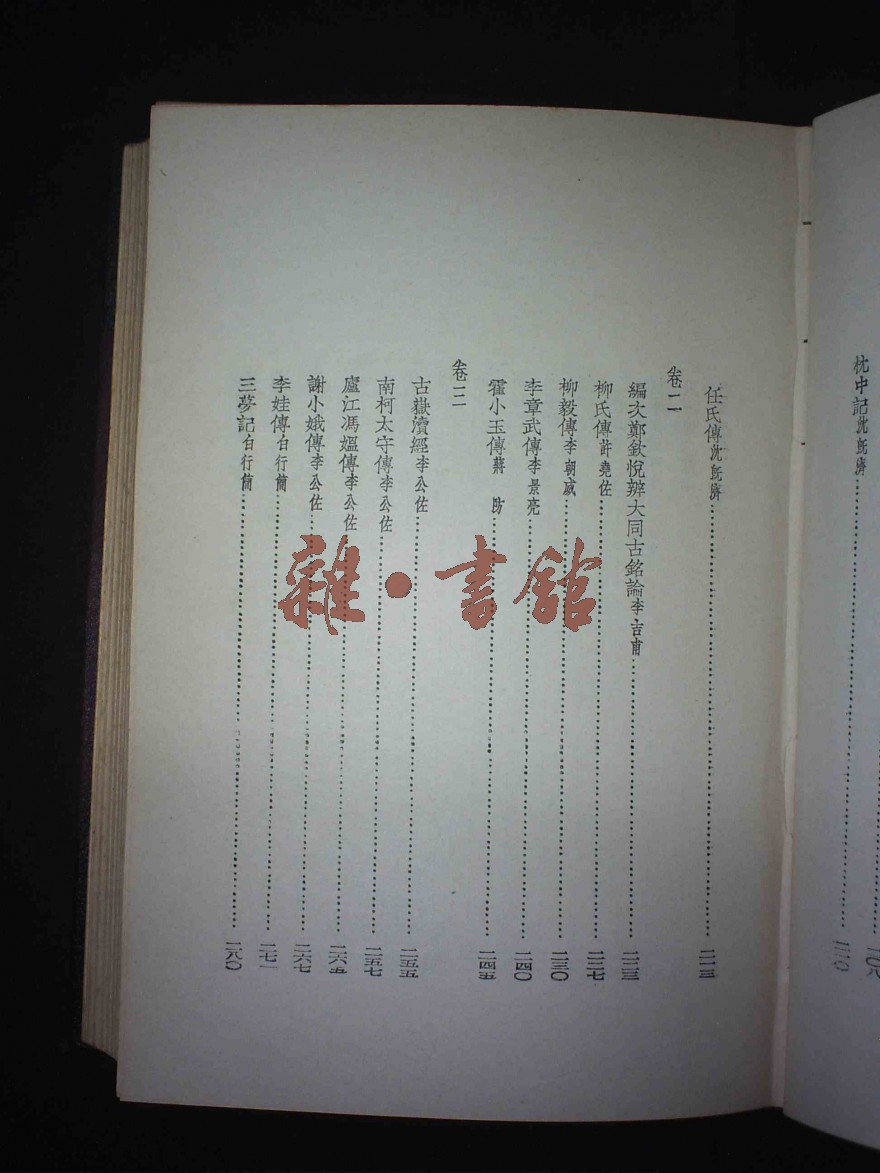 二〇八
枕中記沈既濟……二一〇
任氏傳沈既濟……二一三
卷二
編次鄭欽悅辨大同古銘論李吉甫……二二三
柳氏傳許堯佐……二二七
柳毅傳李朝威……二三〇
李章武傳李景亮……二四〇
霍小玉傳蔣 防……二四五
卷三
古嶽瀆經李公佐……二五五
南柯太守傳李公佐……二五七
廬江馮媼傳李公佐……二六五
謝小娥傳李公佐……二六七
李娃傳白行簡……二七一
三夢記白行簡……二八〇
雜·書館